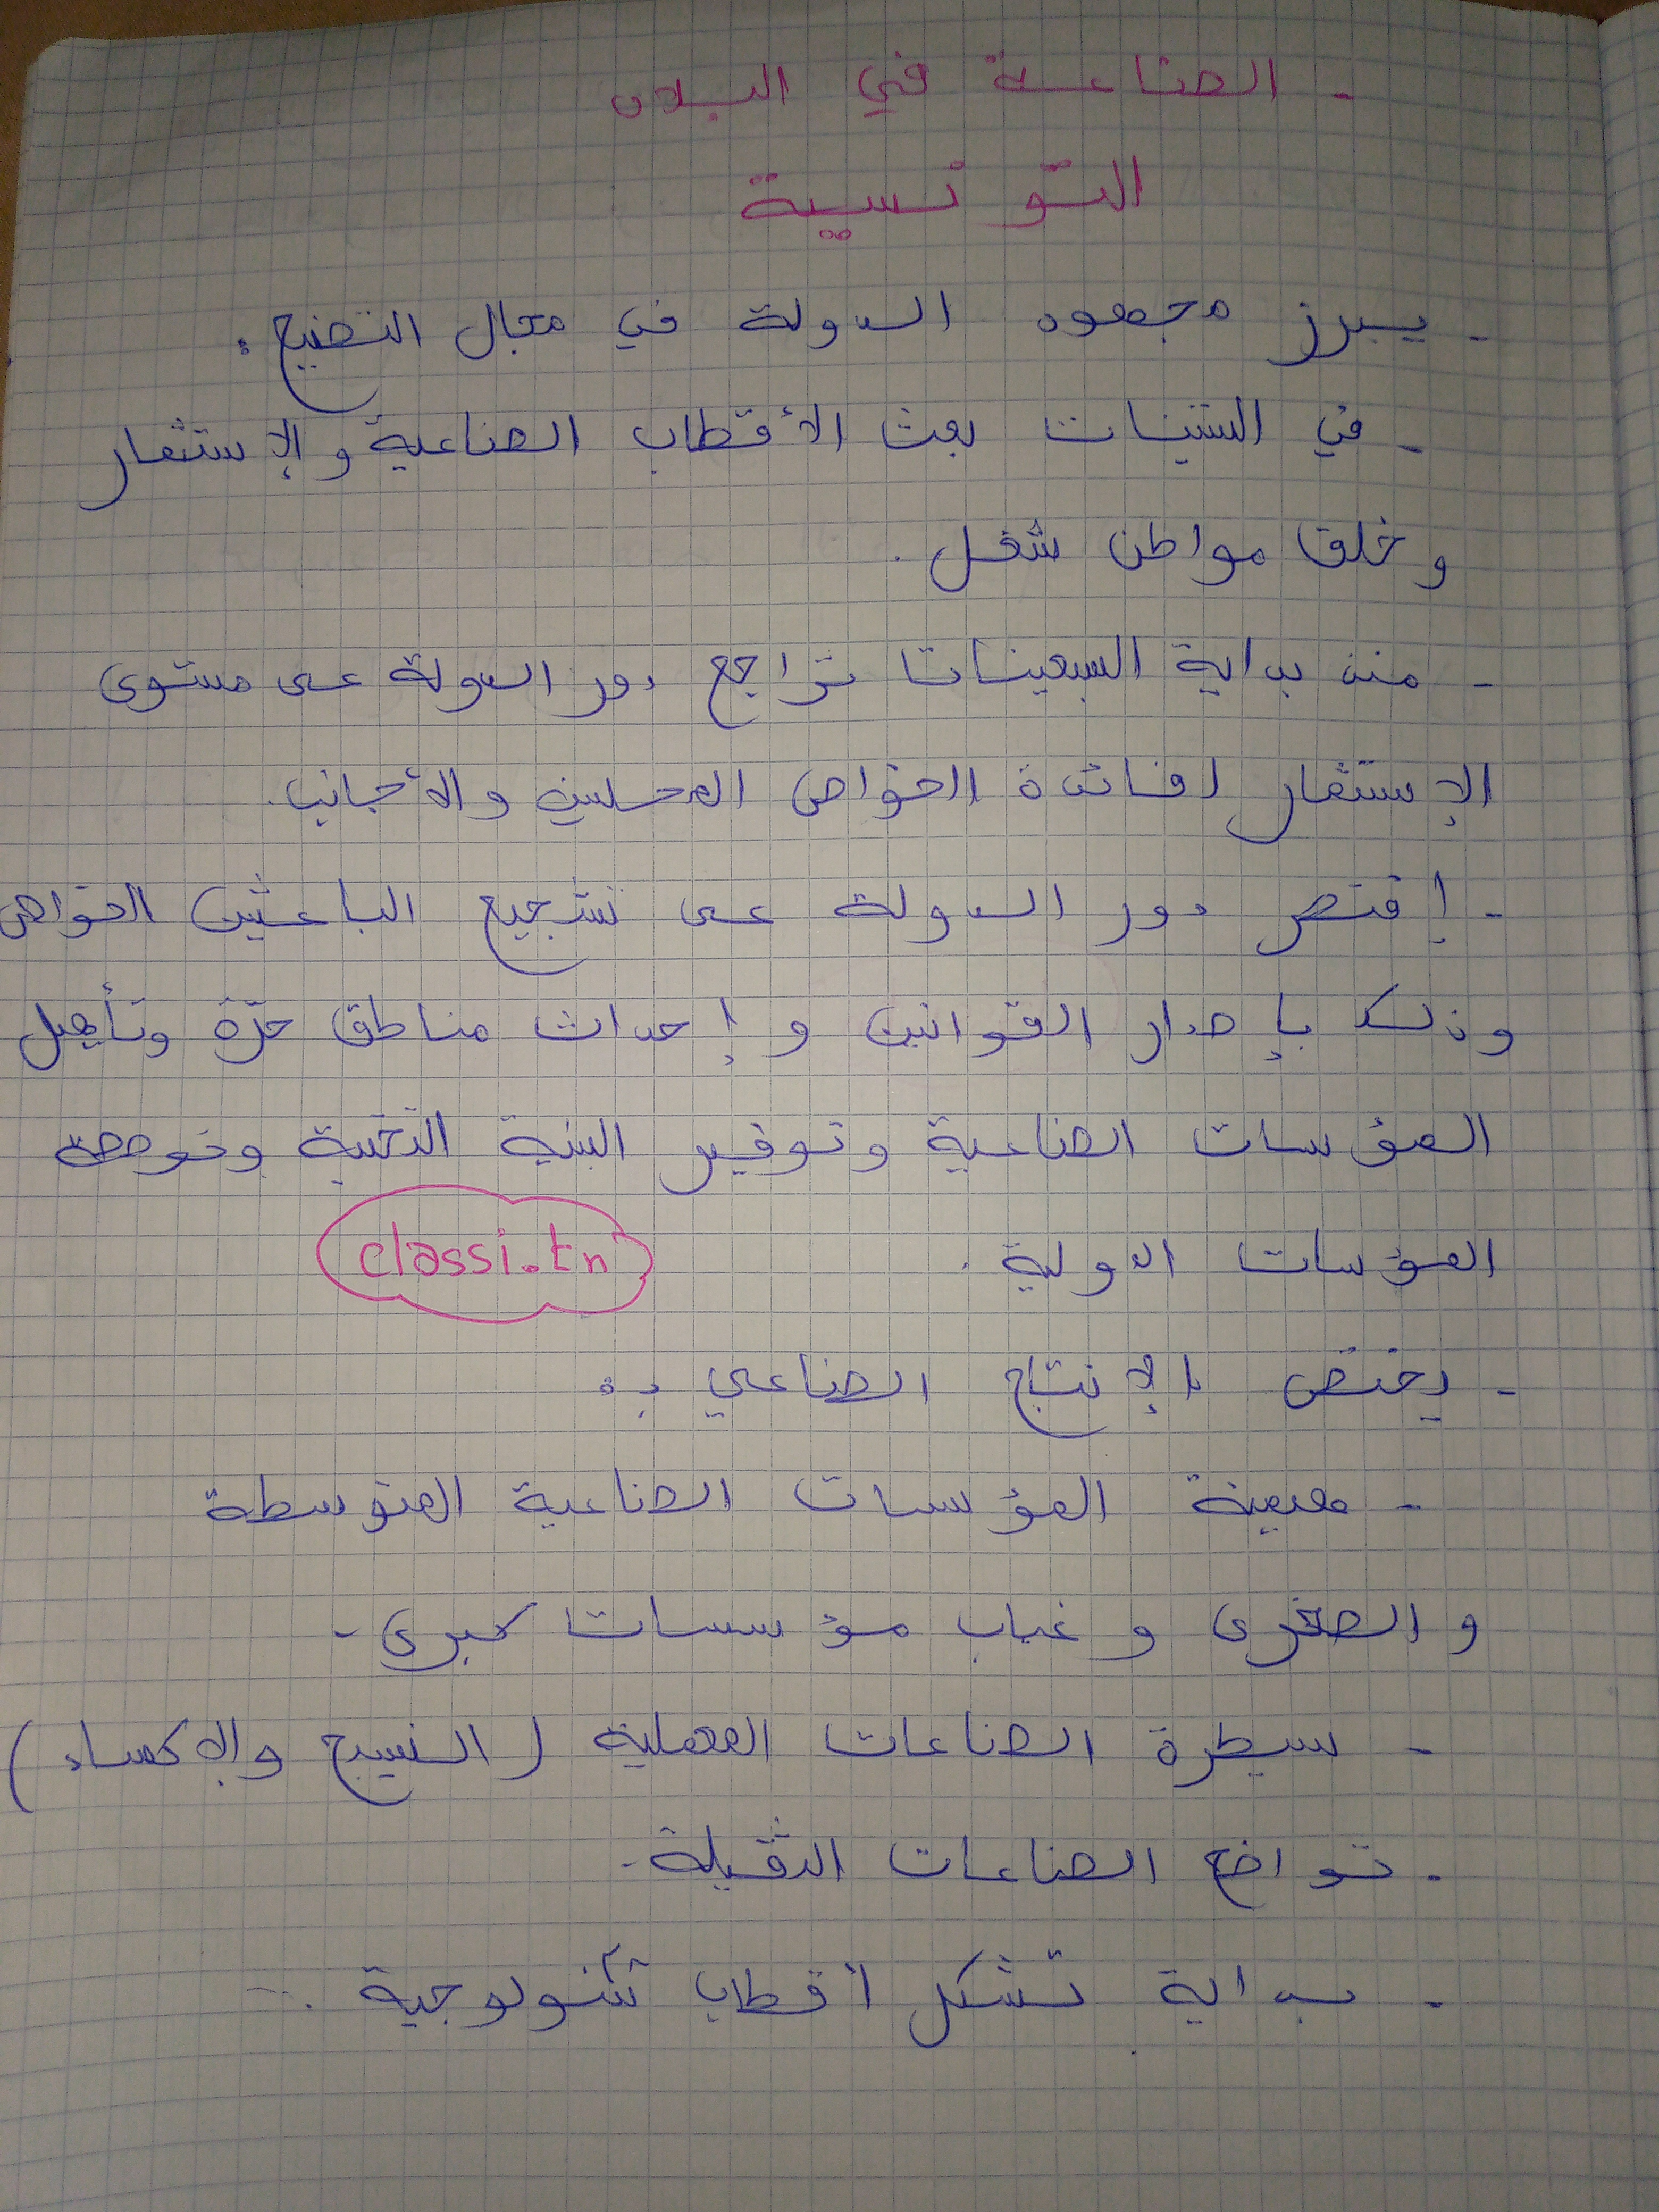 - الصناعة في البلاد
التونسية
- يبرز مجهود الدولة في مجال التصنيع :
- في الستينات بعث الأقطاب الصناعية والإستثمار
وخلق مواطن شغل .
- منذ بداية السبعينات تراجع دور الدولة على مستوى
الإستثمار لفائدة الخواص المحليين والأجانب .
- إقتصر دور الدولة على تشجيع الباعثين الخواص
وذلك بإصدار القوانين وإحداث مناطق حرّة وتأهيل
المؤسسات الصناعية وتوفير البنية التحتية وخوصصة
المؤسسات الدولية .
classi.tn
- يختص الإنتاج الصناعي بـ :
- هيمنة المؤسسات الصناعية المتوسطة
و الصغرى و غياب مؤسسات كبرى -
- سيطرة الصناعات المعملية ( النسيج والإكساء )
- تواضع الصناعات الثقيلة -
- بداية تشكل أقطاب تكنولوجية .